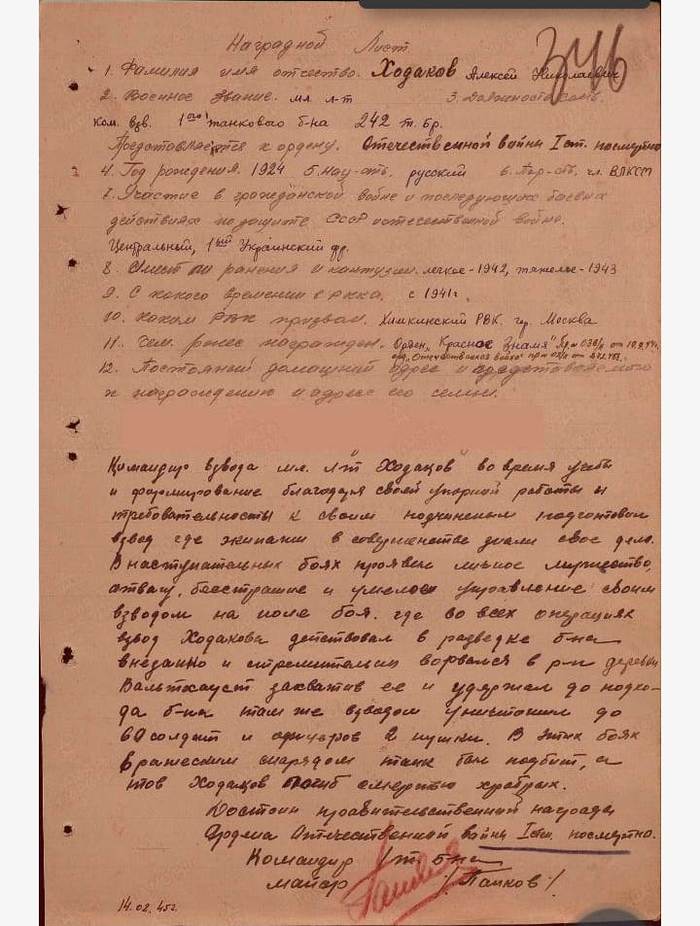 Наградной Лист
346
1. Фамилия имя отчество. Ходаков Алексей Николаевич
2. Военное звание. мл. л-т 3. Должность часть.
ком. взв. 1ого танкового б-на 242 т. бр.
Предоставляется к ордену. Отечественной войны I ст. посмертно
4. Год рождения. 1924 5. нац-ть. русский 6. пар-ть. чл. ВЛКСМ
7. Участие в гражданской войне и последующих боевых
действиях по защите СССР и отечественной войне.
Центральный, 1ый Украинский фр.
8. Имеет ли ранения и контузии. легкое-1942, тяжелое-1943
9. С какого времени в РККА. с 1941г.
10. Каким РВК призван. Химкинский РВК. гор. Москва
11. Чем ранее награжден. Орден "Красное Знамя" Пр.№
орд. "Отечественная война" пр №
12. Постоянный домашний адрес и представляемого
к награждению и адрес его семьи.
Командир взвода мл. л-т "Ходацов" во время учебы
и формирование благодаря своей упорной работы и
требовательносты к своим подчиненым подготовил
взвод где экипажи в совершенстве знали свое дело.
В наступательных боях проявел личное мужество,
отвагу, бесстрашие и умелое управление своим
взводом на поле боя. где во всех операциях
взвод Ходакова действовал в разведке б-на
внезапно и стремительно ворвался в р-н деревни
Вальтхауст захватив ее и удержал до подхо-
да б-на там же взводом уничтожил до
солдат и офицеров 2 пушки. В этих боях
вражеским снарядом танк был подбит, а
тов Ходацов погиб смертью храбрых.
Достоин правительственной награды
Ордена Отечественной войны I ст. посмертно.
Командир 1 т б-на
майор /Папков/
14.02.45г.